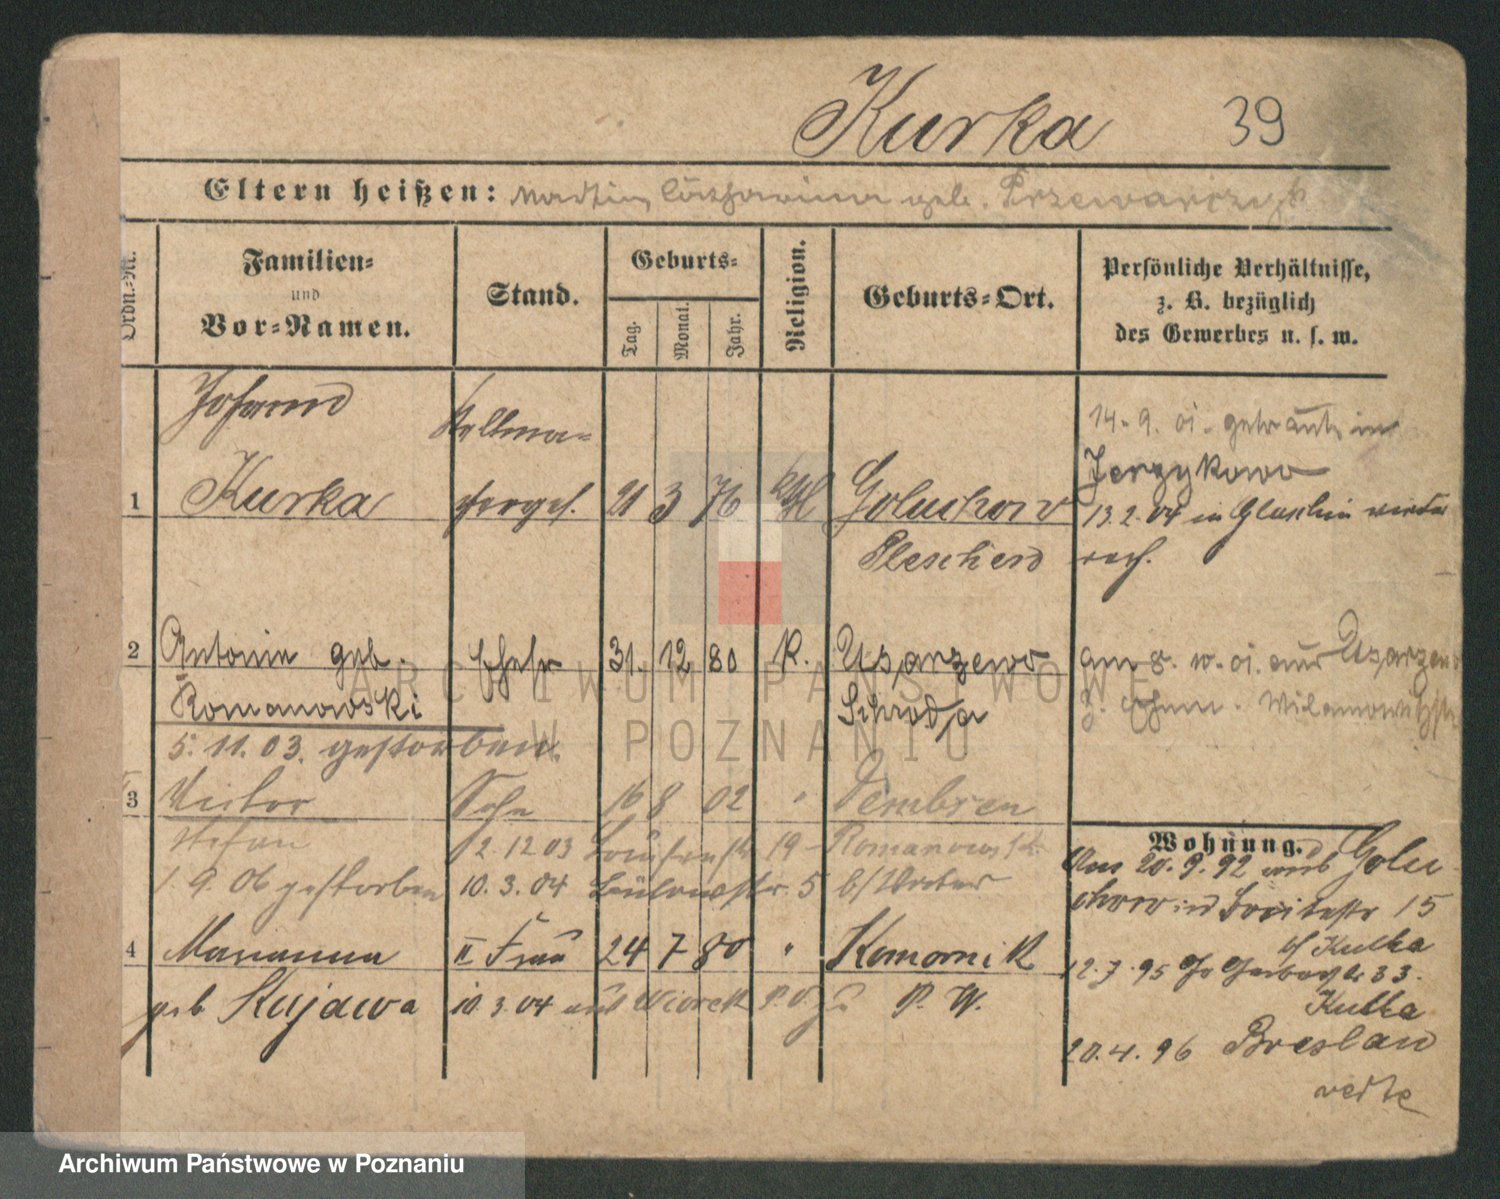 Kurka 39
Eltern heißen: Martin, Catharina geb. Przewarczyk
Ordn.-Nr.
Familien-
und
Vor-Namen.
Stand.
Geburts-
Tag.
Monat.
Jahr.
Religion.
Geburts-Ort.
Persönliche Verhältnisse,
z. B. bezüglich
des Gewerbes u. s. w.
Johann
Kellma-
14. 9. 01. getraut in
Jerzykowo
1 Kurka 21 3 76 kth Goluchow
13.2.04 in Gluschin wieder
Pleschen
verh.
2 Antonie geb. Ehefr 31. 12 80 K. Usarzewo
am 8. 10. 01. aus Usarzewo
Romanowski
Schroda
z. Ehem. Wilamowitzstr.
5. 11. 03. gestorben.
3 Victor Sohn 16 8 02 " Dembsen
Stefan
2. 12 03 19 Romanowski
1. 9. 06 gestorben 10. 3. 04 Bülowstr. 5 b/
Wohnung.
Am 20. 9. 92 aus Golu
chow in Breitestr 15
b/ Kulka
4 Marianna II Frau 24 7 80 " Komornik
12. 7. 95 Gr Gerberstr 33.
Kulka
geb Kujawa 10. 3. 04 aus Wiorek P. O. P. W.
20. 4. 96 Breslau
ARCHIWUM PAŃSTWOWE
W POZNANIU
Archiwum Państwowe w Poznaniu